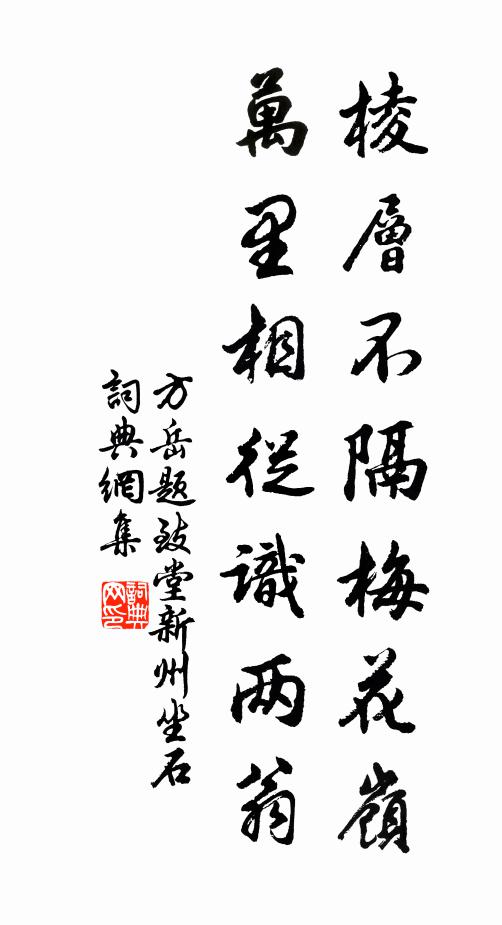 棱層不隔梅花嶺
萬里相從識兩翁
方岳題致堂新州坐石
詞典網集
詞典網印